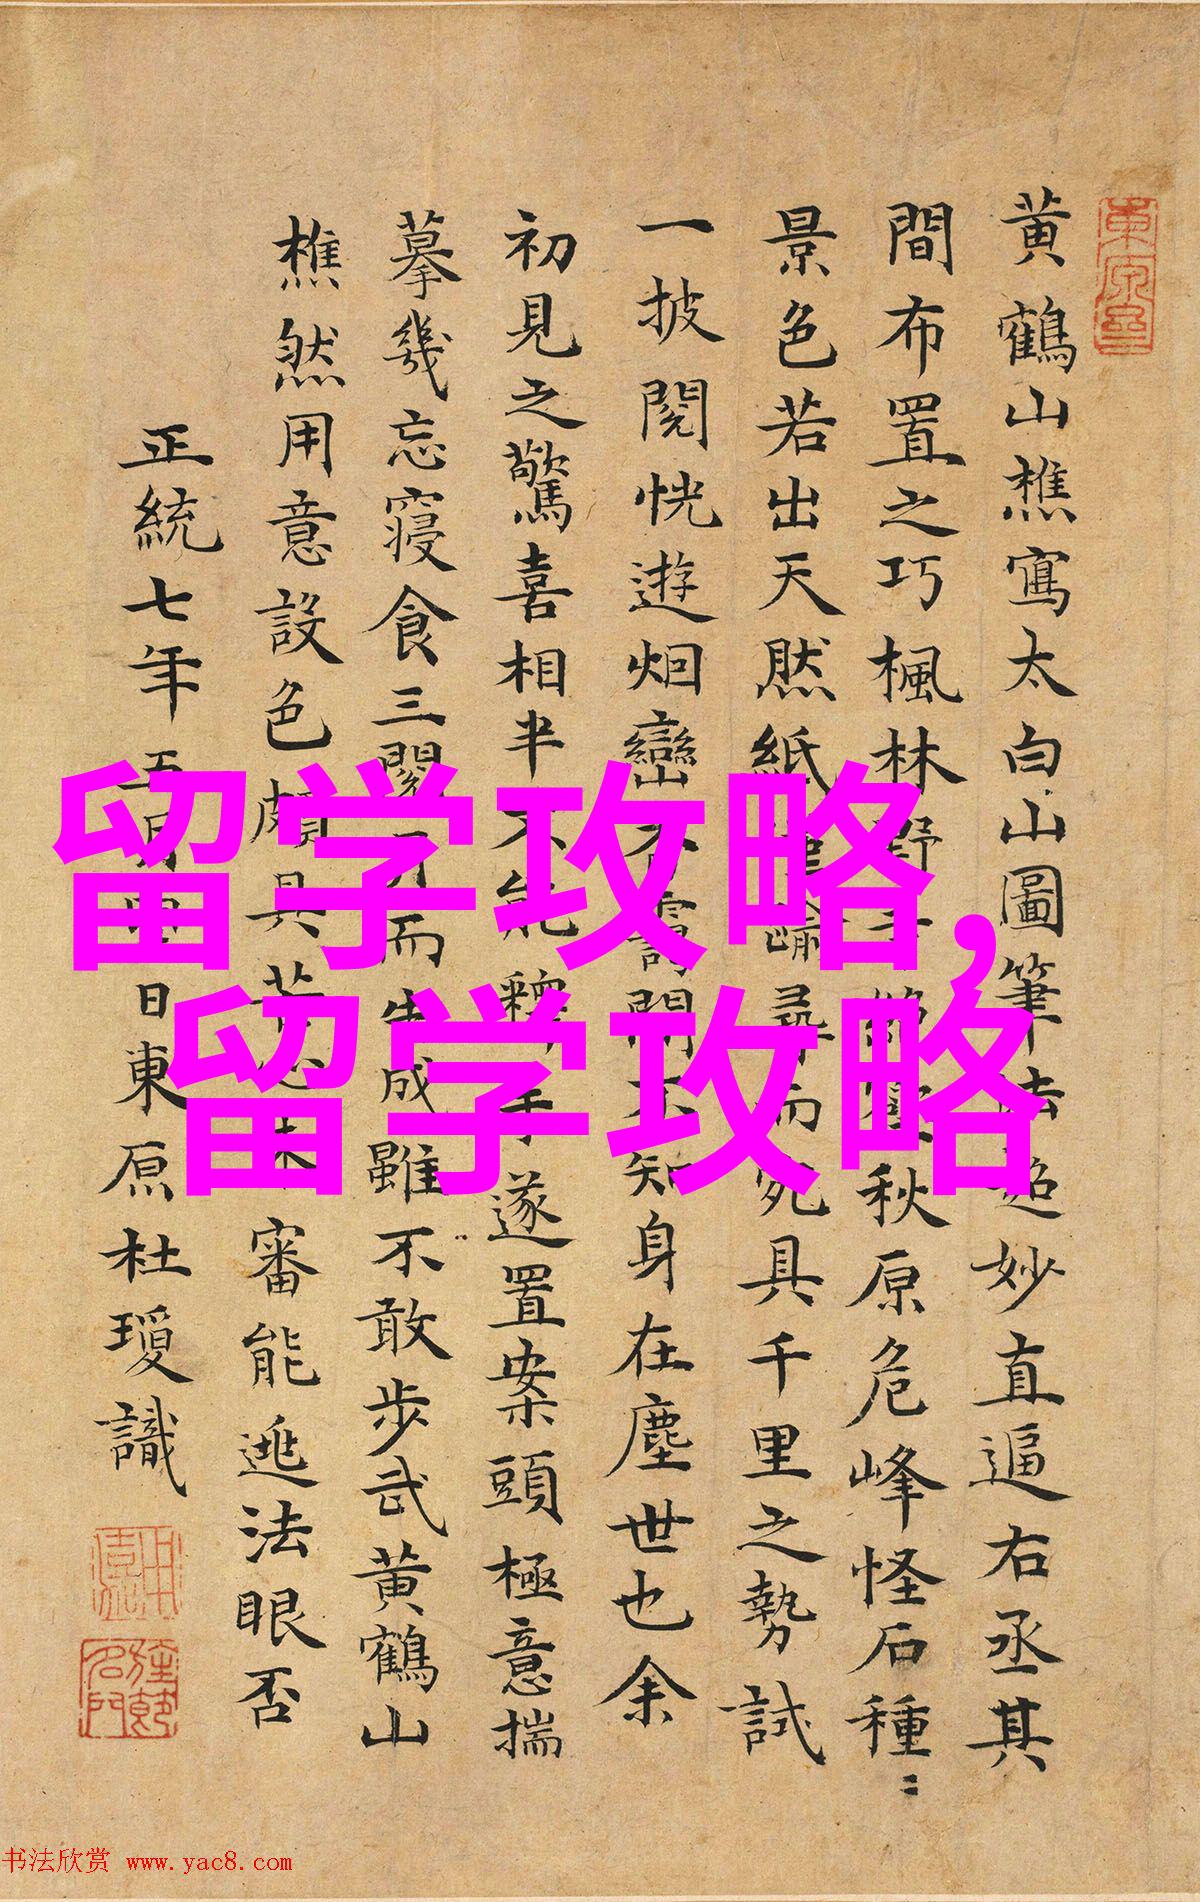 黃鶴山樵寫太白山圖筆法超妙直逼右丞其
間布置之巧楓林野秋原危峰怪石種〻
景色若出天然紙尋而究具千里之勢試
一披閱恍遊烟巒不知身在塵世也余
初見之驚喜相半不能釋手遂置案頭極意揣
摹幾忘寢食三閱月而告成雖不敢步武黃鶴山
樵然用意設色頗具苦心未審能逃法眼否
正統七年五月日東原杜瓊識
留学攻略,
留学攻略
书法欣赏 www.yac8.com